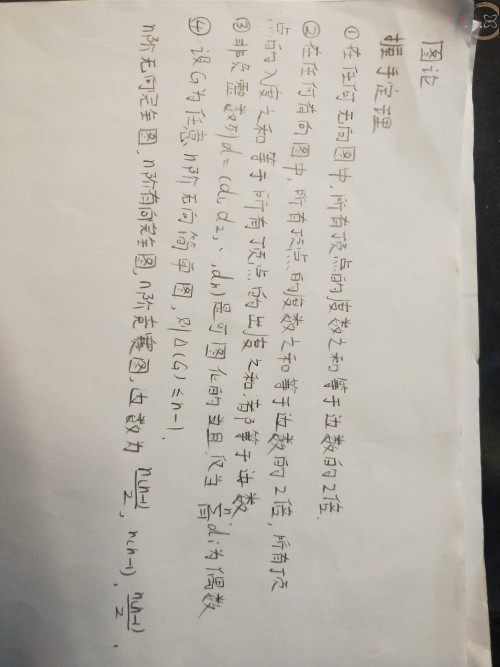 图论
握手定理
①在任何无向图中,所有顶点的度数之和等于边数的2倍.
②在任何有向图中,所有顶点的度数之和等于边数的2倍,所有顶
点的入度之和等于所有顶点的出度之和,都等于边数
③非负整数列d=(d₁,d₂,…,dₙ)是可图化的当且仅当 ∑ⁿᵢ₌₁dᵢ为偶数
④设G为任意n阶无向简单图,则Δ(G)≤n-1.
n阶无向完全图,n阶有向完全图,n阶竞赛图,边数为 n(n-1)/2, n(n-1), n(n-1)/2.